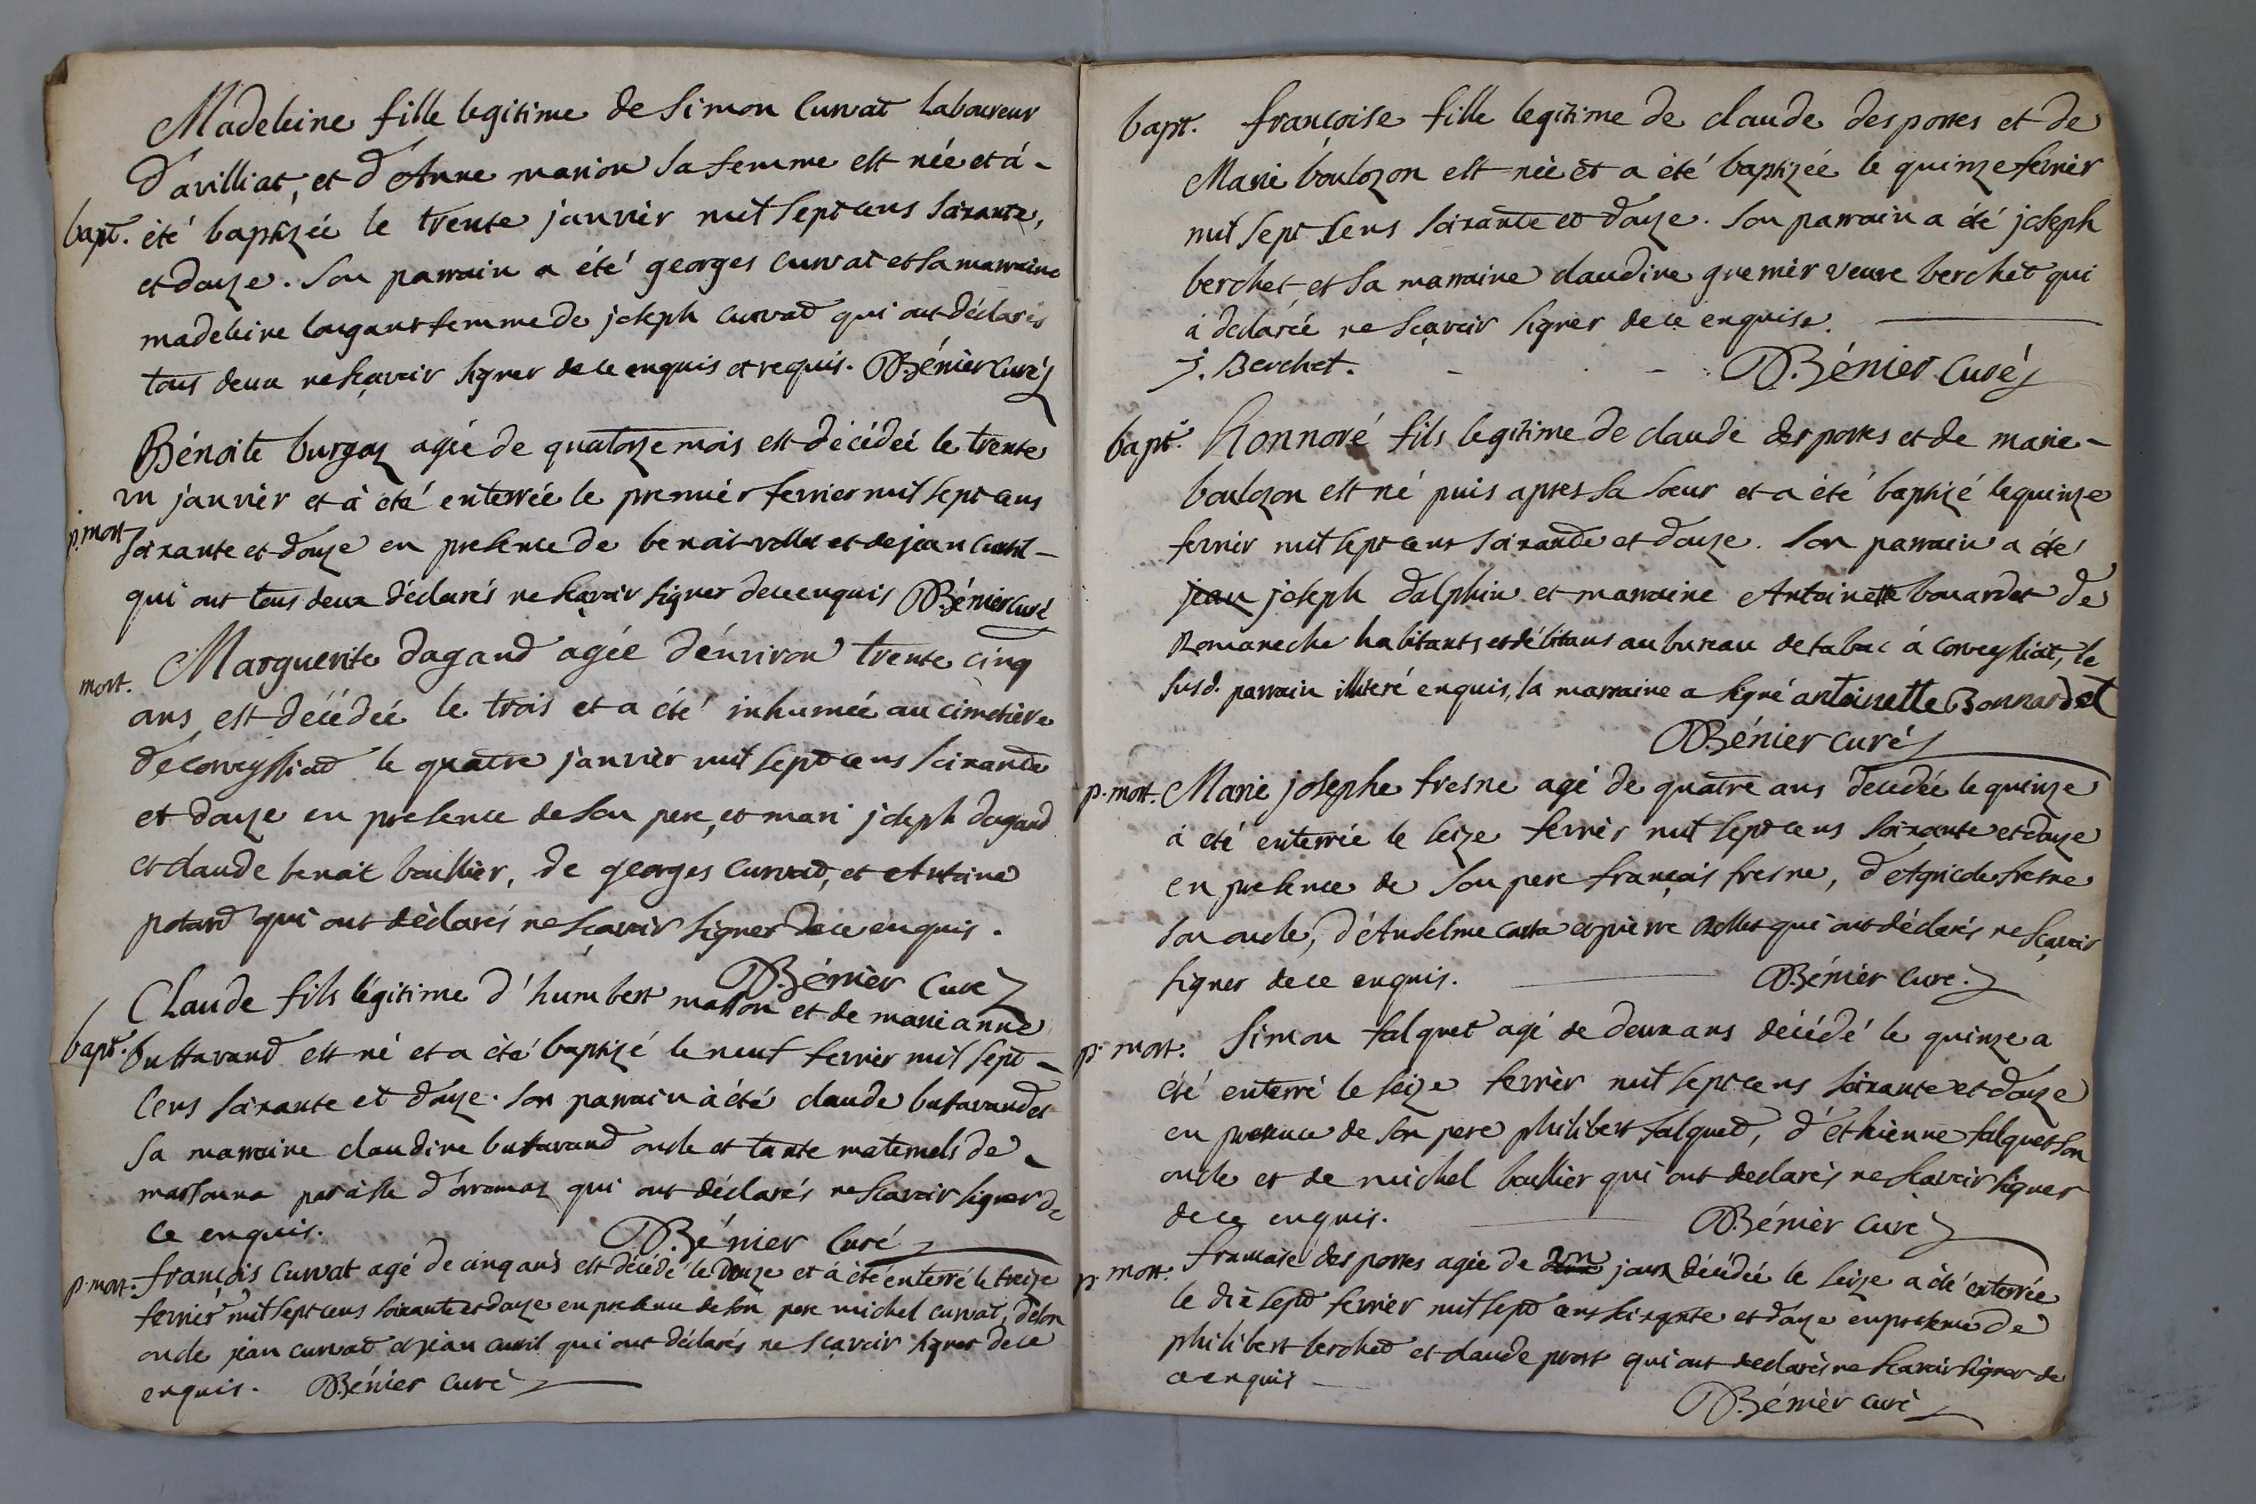 Madeleine fille legitime de Simon Curvat Laboureur
d'avilliat, et d'Anne marion sa femme est née et à
bapt. été baptizée le trente janvier mil sept cens soixante,
et douze. Son parrain a été georges curvat et sa marraine
madeleine femme de joseph curvat qui ont déclarés
tous deux ne sçavoir signer de ce enquis et requis. Bénier Curé
Bénoite burgoz agée de quatorze mois est décédée le trente
un janvier et à été enterrée le premier fevrier mil sept cens
p. mort soixante et douze en presence de benoit vollet et de jean curtil
qui ont tous deux déclarés ne sçavoir signer de ce enquis Bénier Curé
mort. Marguerite dagand agée d'énviron trente cinq
ans est décédée le trois et a été inhumée au cimetière
de corveyssiat le quatre janvier mil sept cens soixante
et douze en presence de son pere, et mari joseph dagand
et claude benoit boullier, de georges curvat, et Antoine
potard qui ont déclarés ne sçavoir signer de ce enquis.
Bénier Curé
Claude fils légitime d'humbert masson et de marianne
bapt. buttavand est né et a été baptizé le neuf fevrier mil sept
cens soixante et douze. son parrain à été claude buttavand et
sa marraine claudine buttavand oncle et tante maternels de
marsonna paroisse d'aromaz qui ont déclarés ne sçavoir signer de
ce enquis. Bénier Curé
p. mort. françois curvat agé de cinq ans est décédé le douze et à été enterré le treize
fevrier mil sept cens soixante et douze en presence de son pere michel curvat, de son
oncle jean curvat et jean curtil qui ont déclarés ne sçavoir signer de ce
enquis. Bénier curé
bapt. françoise fille legitime de claude desportes et de
Marie boulozon est née et a été baptizée le quinze fevrier
mil sept cens soixante et douze. Son parrain a été joseph
berchet, et sa marraine claudine grenier veuve berchet qui
à déclarée ne sçavoir signer de ce enquise.
J. Berchet. Bénier Curé
bapt. Honnoré fils legitime de claude desportes et de marie
boulozon est né puis apres sa soeur et a été baptizé le quinze
fevrier mil sept cens soixante et douze. Son parrain a été
jean joseph dalphin et marraine Antoinette bonardet de
Romaneche habitants et débitans au bureau de tabac à corveyssiat, le
susd. parrain illiteré enquis, la marraine a signé antoinette Bonnardet
Bénier curé
p. mort. Marie josephe fresne agé de quatre ans decedée le quinze
à été enterrée le seize fevrier mil sept cens soixante et douze
en presence de son pere françois fresne, d'Agricole fresne
son oncle, d'Anselme et pierre vollet qui ont déclarés ne sçavoir
signer de ce enquis. Bénier Curé.
p. mort. Simon falquet agé de deux ans décédé le quinze a
été enterré le seize fevrier mil sept cens soixante et douze
en presence de son pere philibert falquet, d'éthienne falquet son
oncle et de michel boullier qui ont declarés ne sçavoir signer
de ce enquis. Bénier Curé
p. mort. francoise desportes agée de un jour décédée le seize a été enterrée
le dix sept fevrier mil sept cens soixante et douze en presence de
philibert berchet et claude prost qui ont declarés ne sçavoir signer de
ce enquis
Bénier curé